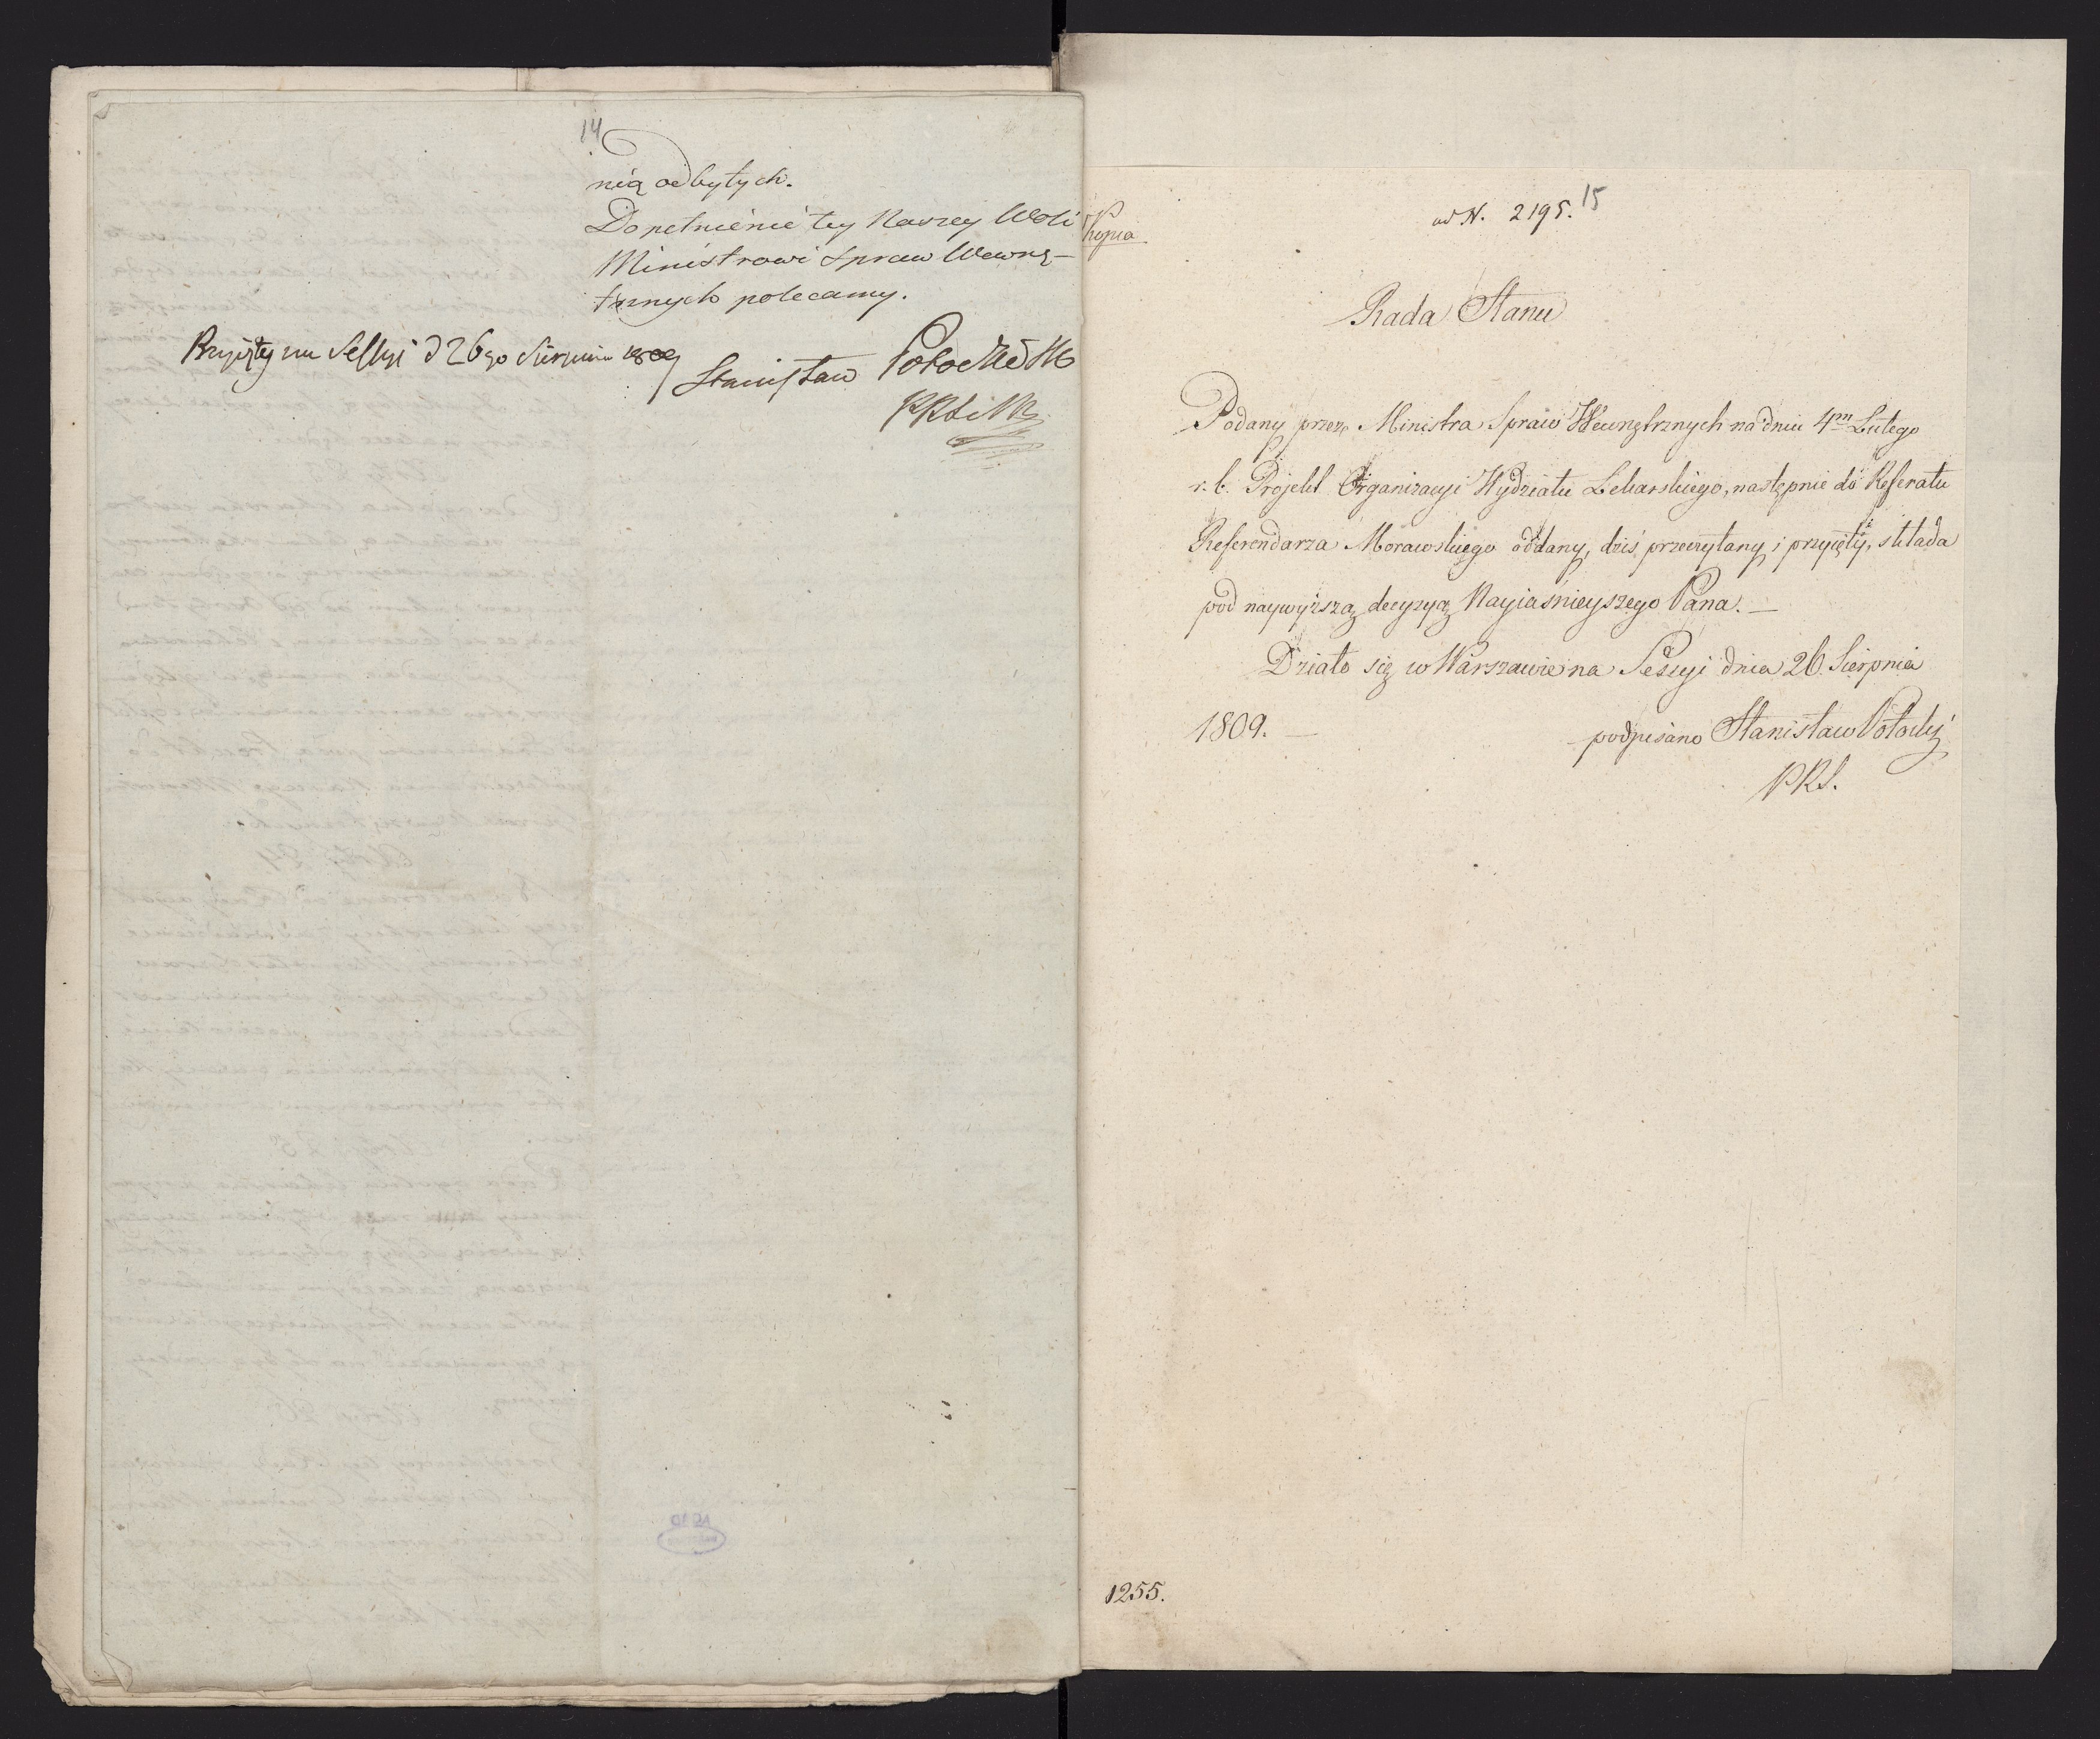 14
nią odbytych.
Dopełnienie tey Naszey Woli
Ministrowi Spraw Wewnę-
trznych polecamy.
Przyięty na Sessyi d 26go Sierpnia 1809
Stanisław Potocki
Kopia
ad N. 2195.
15
Rada Stanu
Podany przez Ministra Spraw Wewnętrznych na dniu 4m Lutego
r. b. Projekt Organizacyi Wydziału Lekarskiego, następnie do Referatu
Referendarza Morawskiego oddany, dziś przeczytany i przyięty, składa
pod naywyższą decyzyą Nayiaśnieyszego Pana. —
Działo się w Warszawie na Sessyi dnia 26. Sierpnia
1809. — podpisano Stanisław Potocky
PRS.
1255.